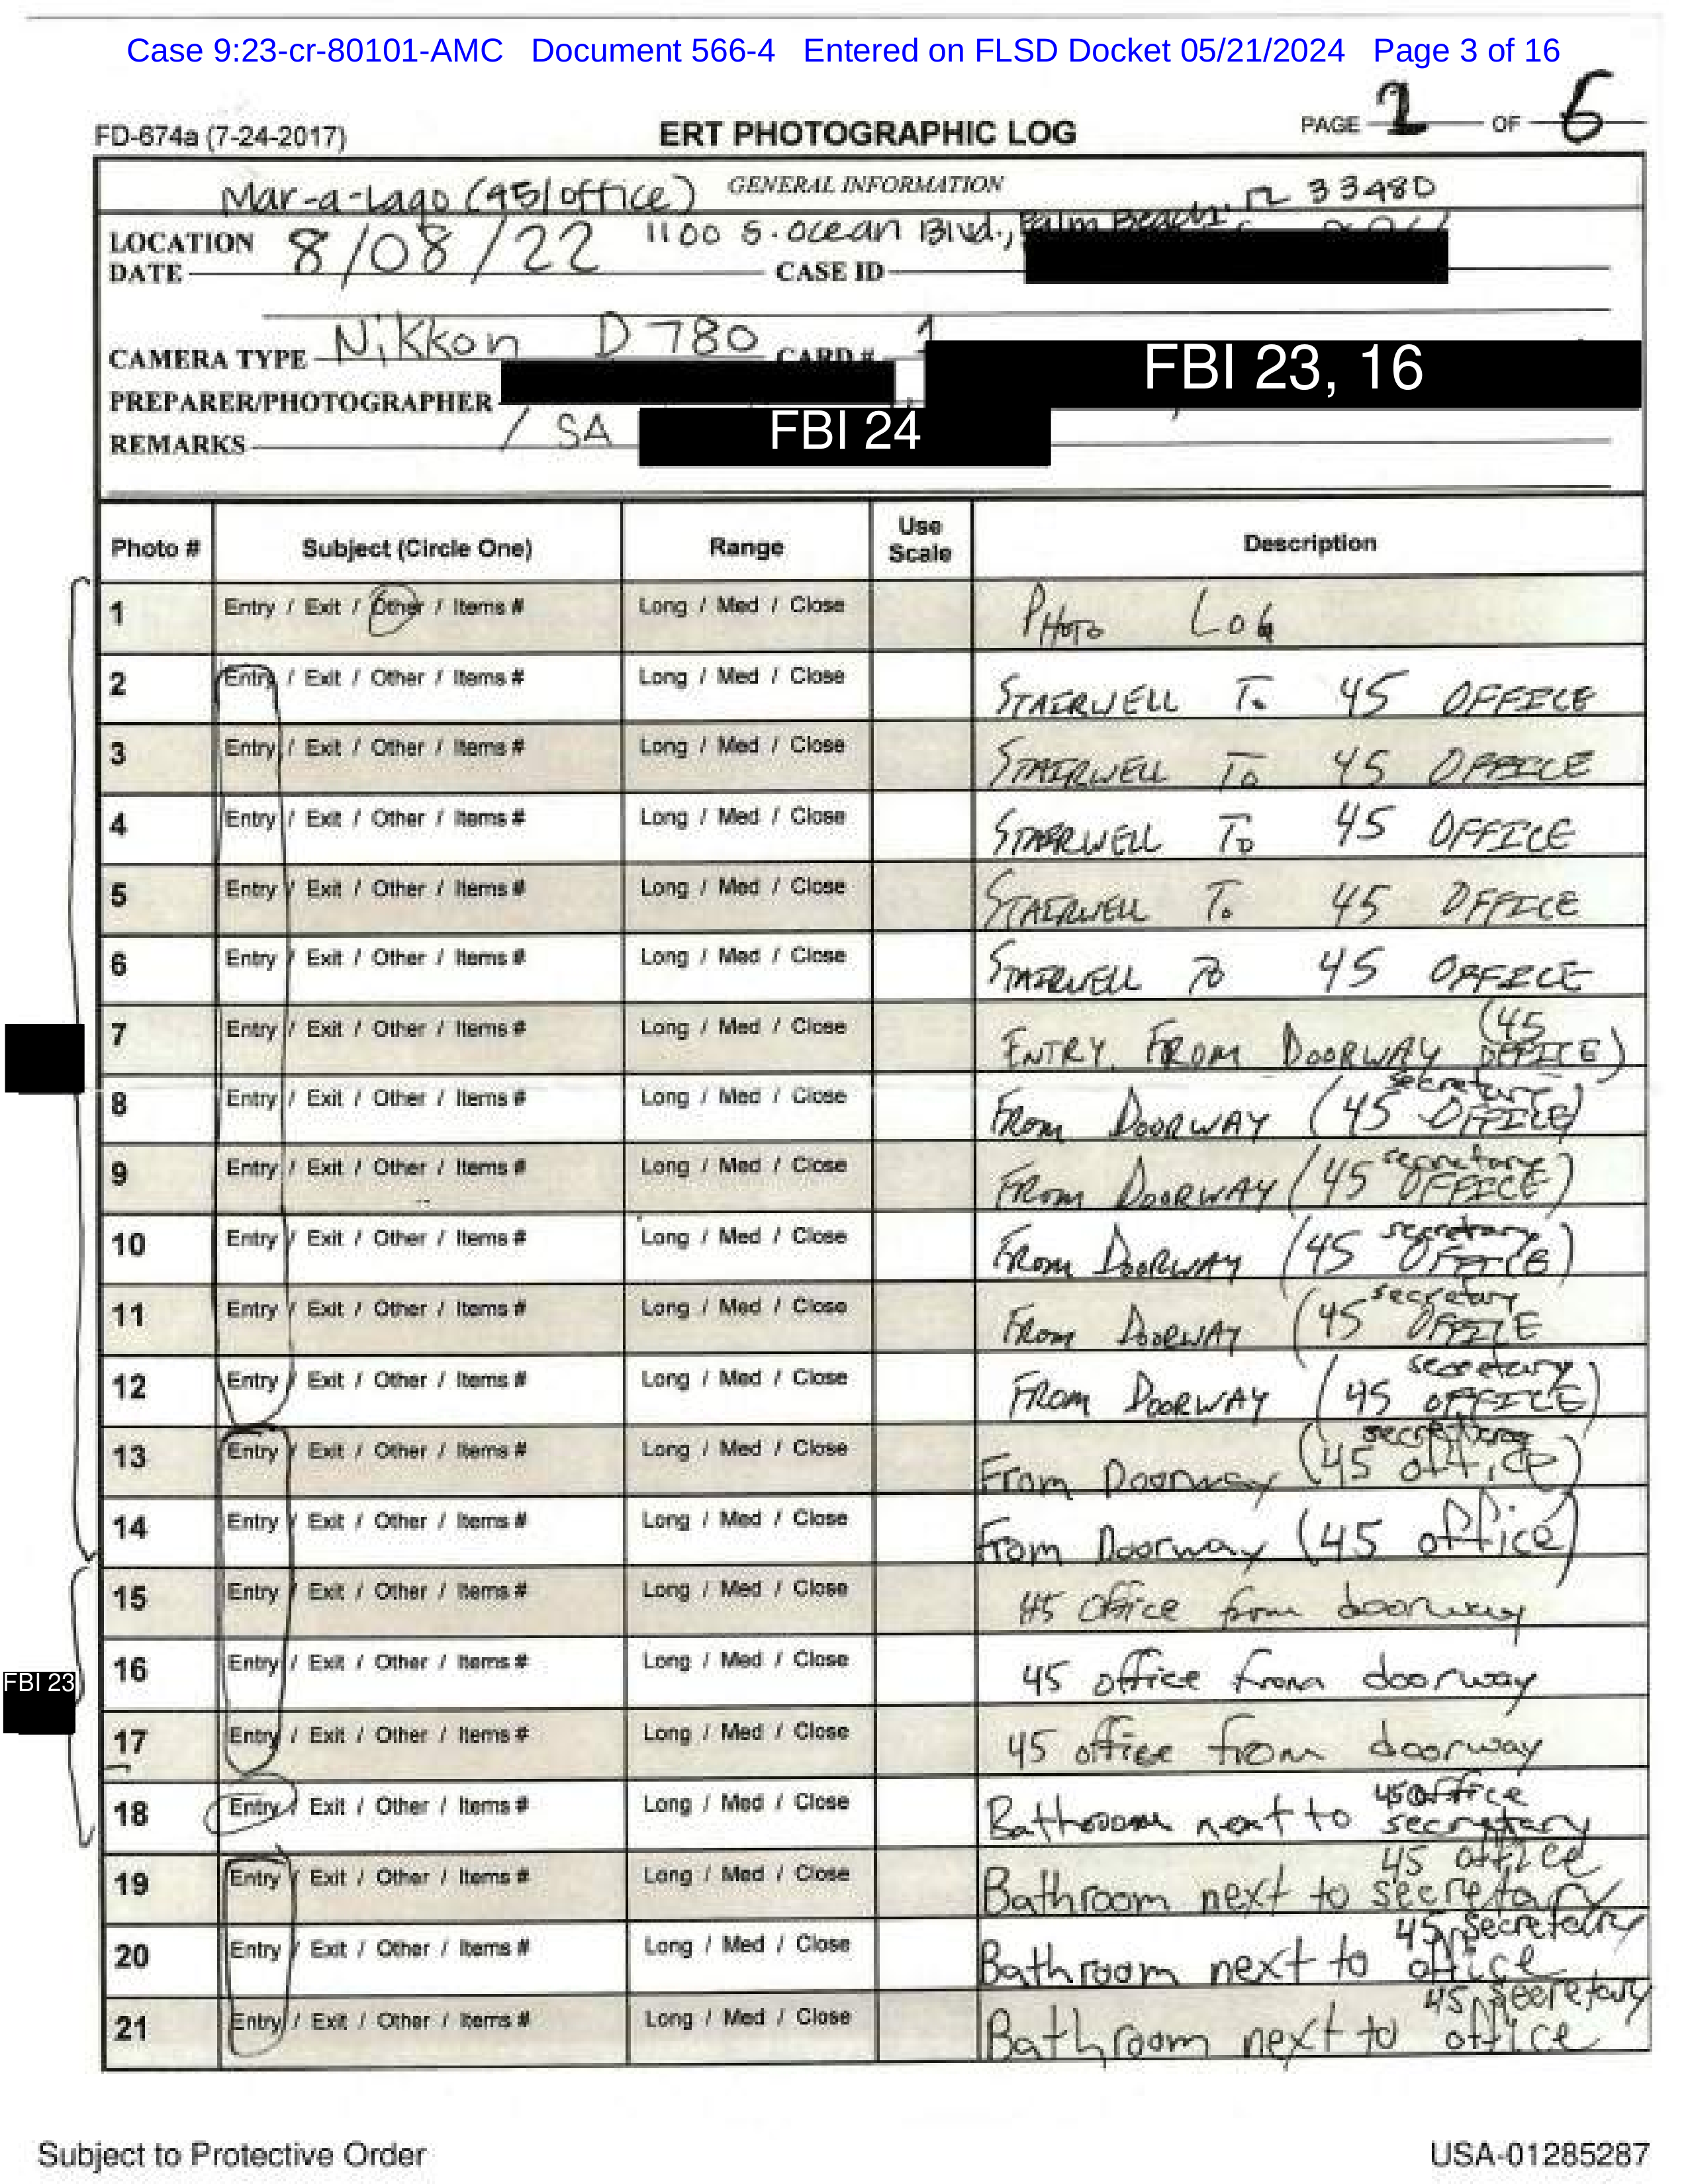 Case 9:23-cr-80101-AMC Document 566-4 Entered on FLSD Docket 05/21/2024 Page 3 of 16
FD-674a (7-24-2017) ERT PHOTOGRAPHIC LOG PAGE 1 OF 6
GENERAL INFORMATION
Mar-a-Lago (45/office)
LOCATION 1100 S. Ocean Blvd., Palm Beach, FL 33480
DATE 8/08/22 CASE ID
CAMERA TYPE Nikkon D780 CARD # 1
PREPARER/PHOTOGRAPHER FBI 23, 16
REMARKS / SA FBI 24
Photo # Subject (Circle One) Range Use Scale Description
1 Entry / Exit / Other / Items # Long / Med / Close PHOTO LOG
2 Entry / Exit / Other / Items # Long / Med / Close STAIRWELL TO 45 OFFICE
3 Entry / Exit / Other / Items # Long / Med / Close STAIRWELL TO 45 OFFICE
4 Entry / Exit / Other / Items # Long / Med / Close STAIRWELL TO 45 OFFICE
5 Entry / Exit / Other / Items # Long / Med / Close STAIRWELL TO 45 OFFICE
6 Entry / Exit / Other / Items # Long / Med / Close STAIRWELL TO 45 OFFICE
7 Entry / Exit / Other / Items # Long / Med / Close ENTRY FROM DOORWAY (45 OFFICE)
8 Entry / Exit / Other / Items # Long / Med / Close FROM DOORWAY (45 secretary OFFICE)
9 Entry / Exit / Other / Items # Long / Med / Close FROM DOORWAY (45 secretary OFFICE)
10 Entry / Exit / Other / Items # Long / Med / Close FROM DOORWAY (45 secretary OFFICE)
11 Entry / Exit / Other / Items # Long / Med / Close FROM DOORWAY (45 secretary OFFICE
12 Entry / Exit / Other / Items # Long / Med / Close FROM DOORWAY (45 secretary OFFICE)
13 Entry / Exit / Other / Items # Long / Med / Close From Doorway (45 secretary office)
14 Entry / Exit / Other / Items # Long / Med / Close From Doorway (45 office)
15 Entry / Exit / Other / Items # Long / Med / Close 45 office from doorway
FBI 23
16 Entry / Exit / Other / Items # Long / Med / Close 45 office from doorway
17 Entry / Exit / Other / Items # Long / Med / Close 45 office from doorway
18 Entry / Exit / Other / Items # Long / Med / Close Bathroom next to 45 office secretary
19 Entry / Exit / Other / Items # Long / Med / Close Bathroom next to 45 office secretary
20 Entry / Exit / Other / Items # Long / Med / Close Bathroom next to 45 secretary office
21 Entry / Exit / Other / Items # Long / Med / Close Bathroom next to 45 secretary office
Subject to Protective Order USA-01285287